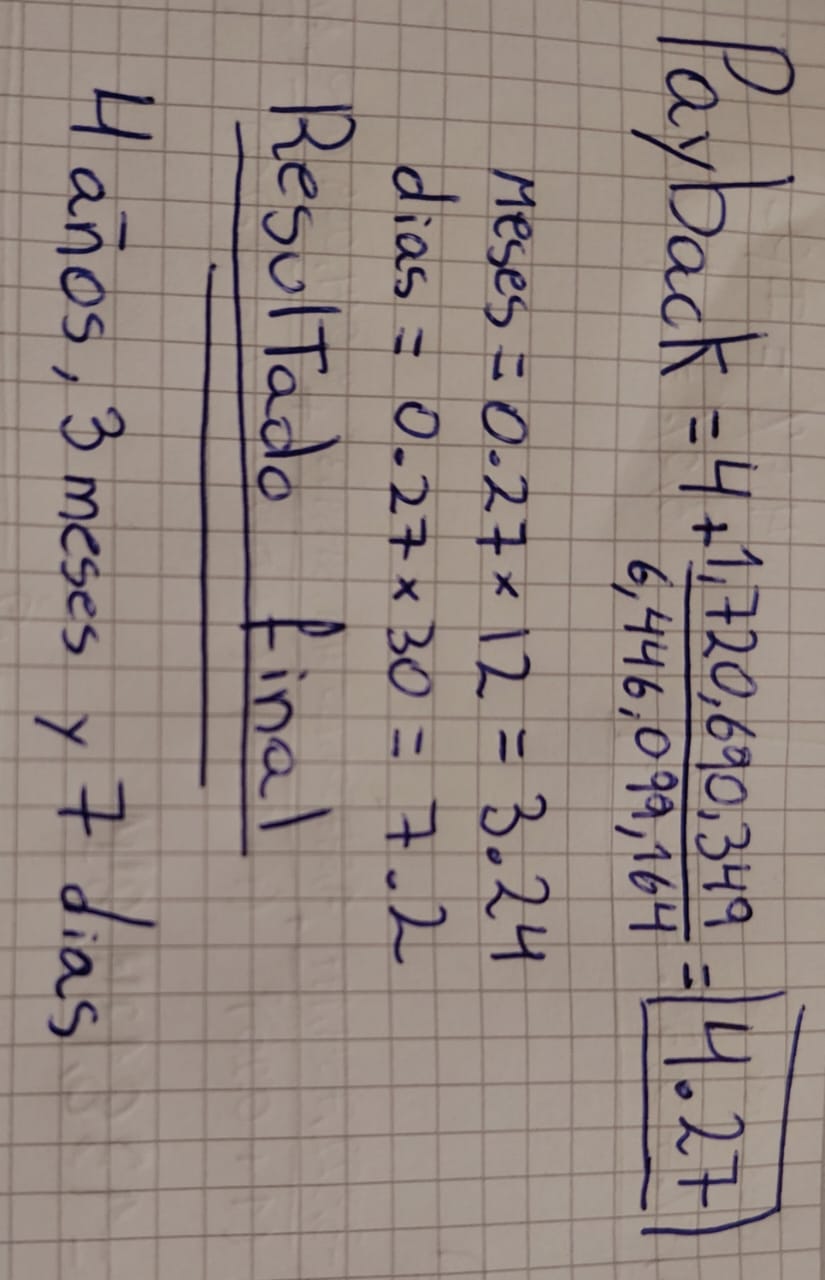 Payback = 4 + 1,720,690,349 / 6,446,099,164 = 4.27
Meses = 0.27 x 12 = 3.24
dias = 0.27 x 30 = 7.2
Resultado final
4 años, 3 meses y 7 dias